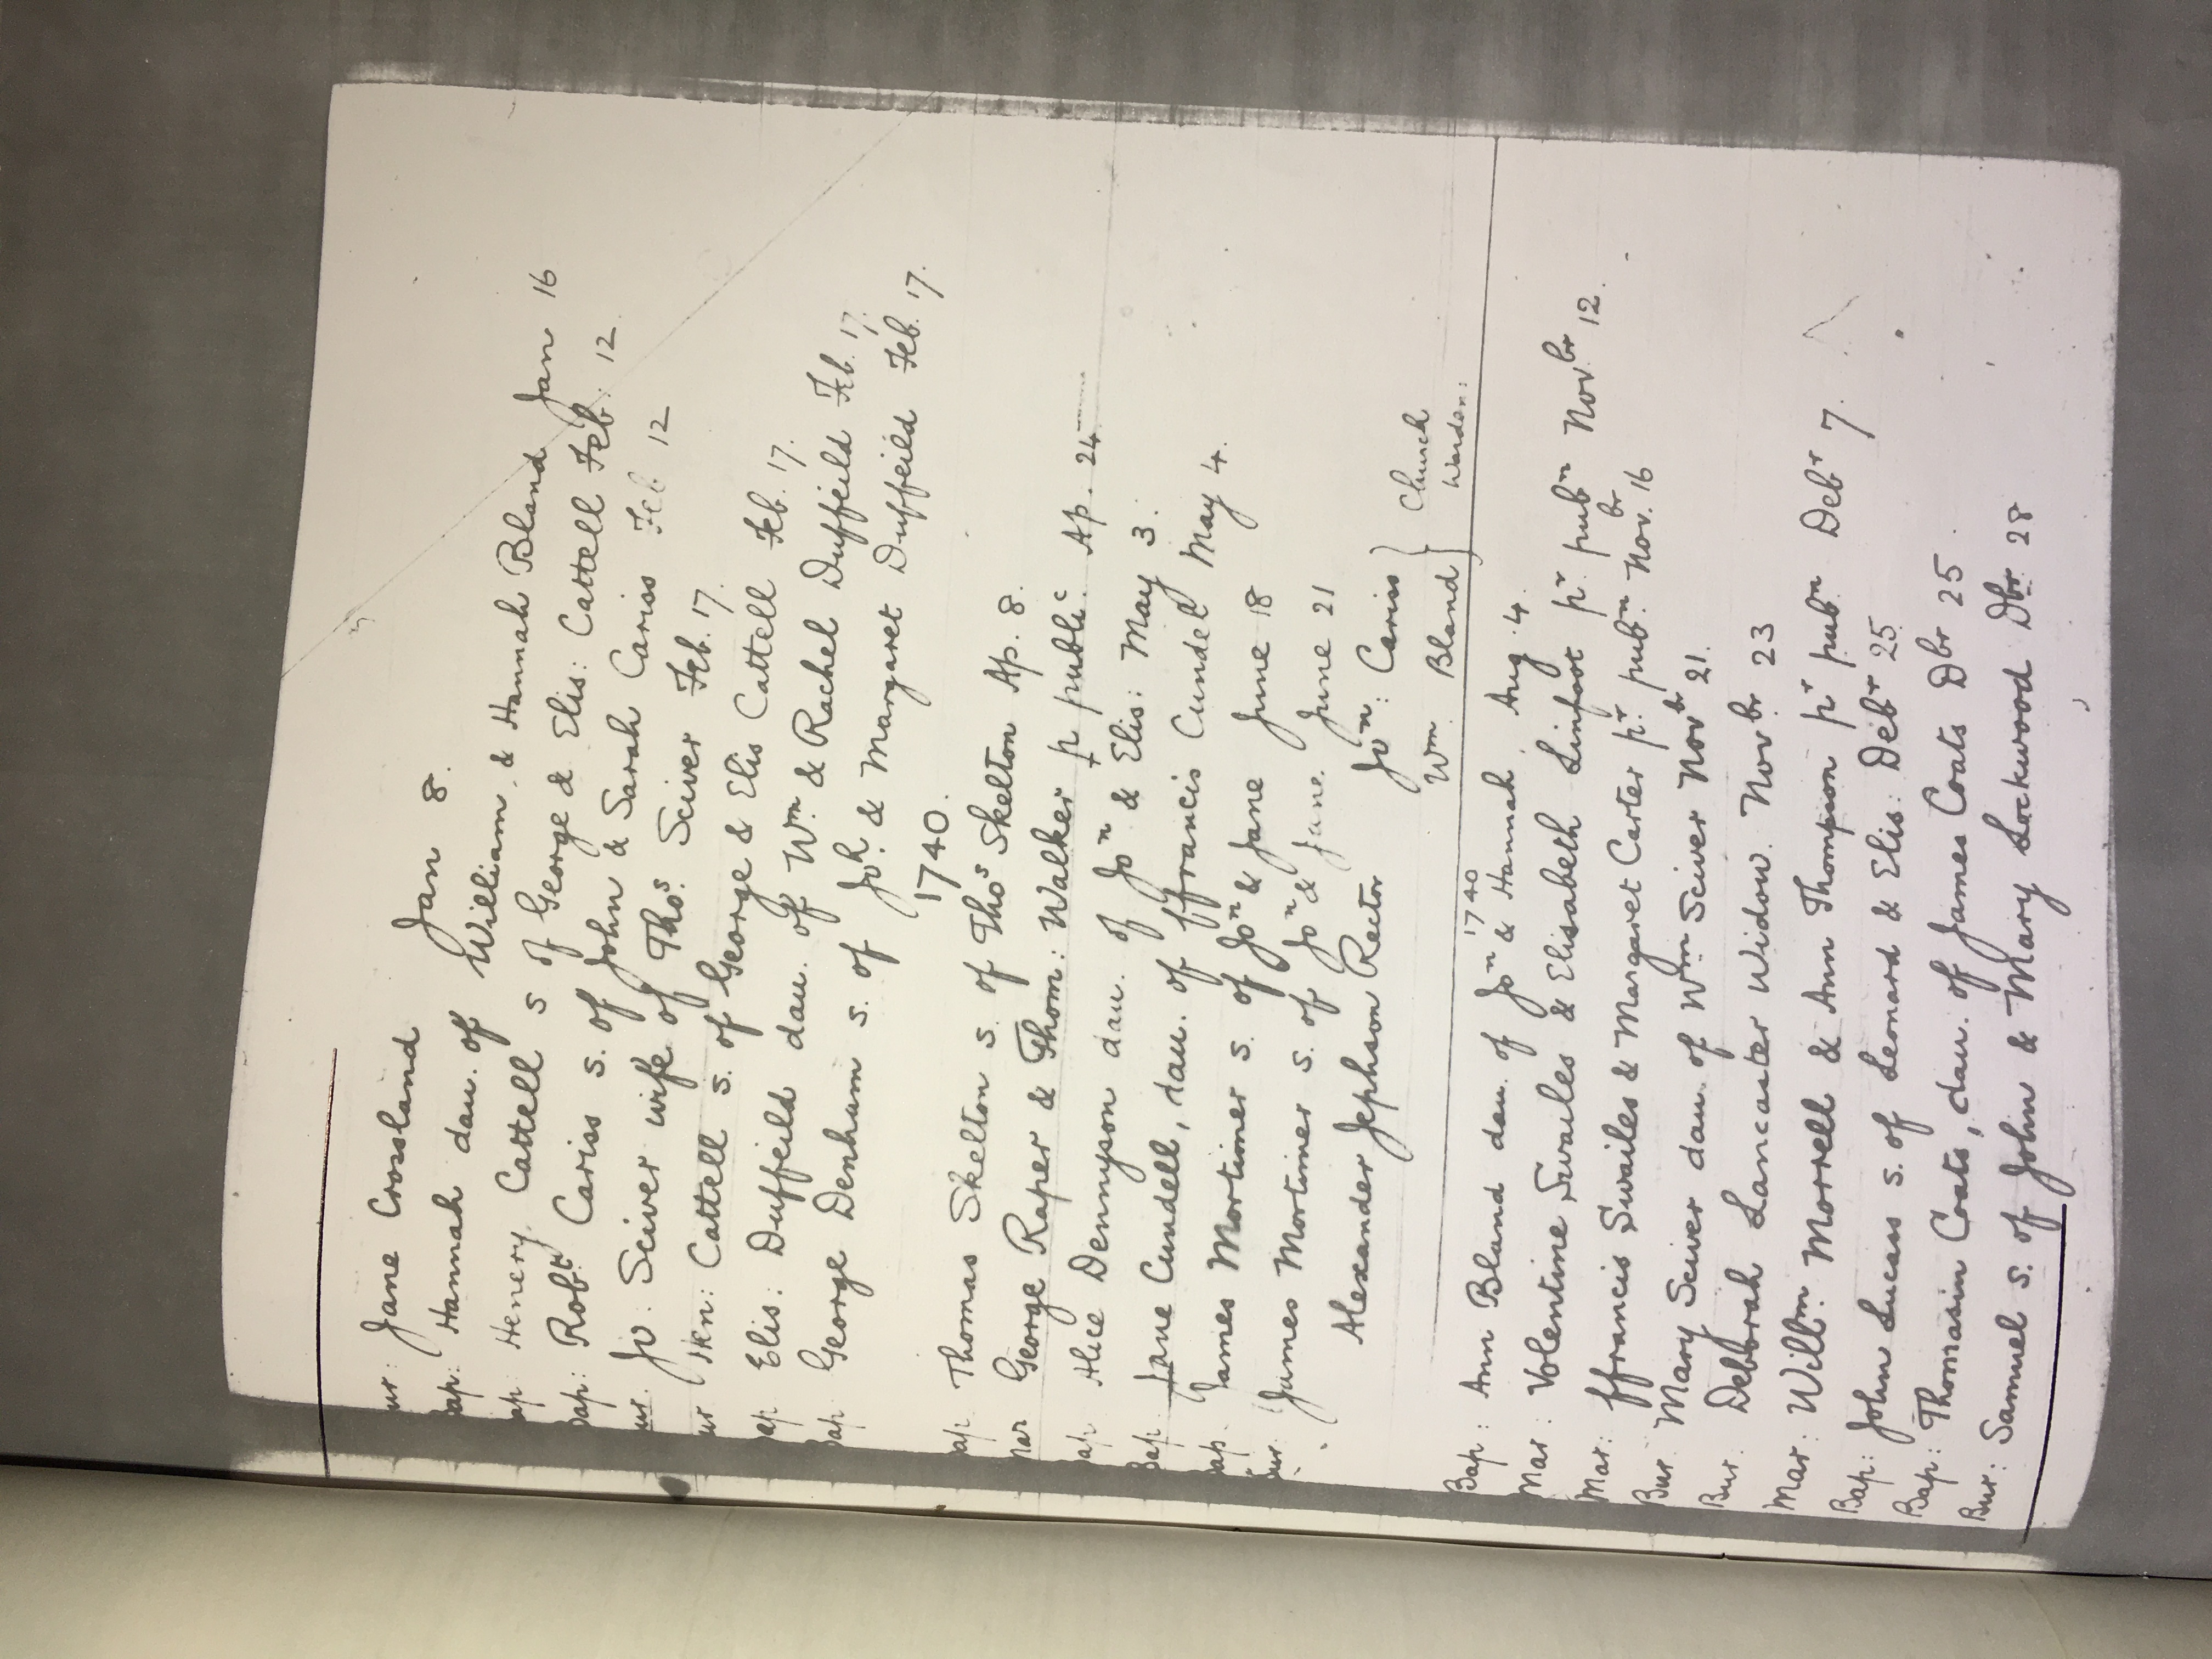 ur: Jane Crossland Jan 8.
Bap: Hannah dau. of William & Hannah Bland Jan 16
ap: Henery Cattell s of George & Elis: Cattell Feb. 12.
Bap: Robt. Cariss s. of John & Sarah Cariss Feb 12
ur. Jo: Sciver wife of Thos. Sciver Feb. 17.
ur Hen: Cattell s. of George & Elis Cattell Feb. 17.
ap Elis: Duffeild dau. of Wm. & Rachel Duffeild Feb. 17.
Bap George Denham s. of Joh. & Margaret Duffeild Feb. 17.
1740.
ap. Thomas Skelton s. of Thos Skelton Ap. 8.
Mar George Raper & Thom: Walker p publi: c Ap. 24
ap Alice Dennyson dau. of Jon & Elis: May 3.
Bap Jane Cundell, dau. of ffrancis Cundel May 4.
Bap. James Mortimer s. of Jon & Jane June 18
Bur: James Mortimer s. of Jon & Jane. June 21
Alexander Jephson Rector Jon: Cariss } Church
Wm. Bland } Warden:
1740
Bap: Ann Bland dau. of Jon & Hannah Aug. 4.
Mar: Volentine Swailes & Elisabeth Linfoot pr. pubn Novbr 12.
Mar: ffrancis Swailes & Margaret Carter pr. pubn. Nov.br 16
Bur Mary Sciver dau. of Wm Sciver Novbr 21.
Bur. Deborah Lancaster Widow. Novbr. 23
Mar: Willm. Morrell & Ann Thompson pr pubn Debr 7.
Bap: John Lucas s. of Leonard & Elis: Debr 25.
Bap: Thomasin Coats, dau. of James Coats Dbr 25.
Bur: Samuel s. of John & Mary Lockwood Dbr. 28